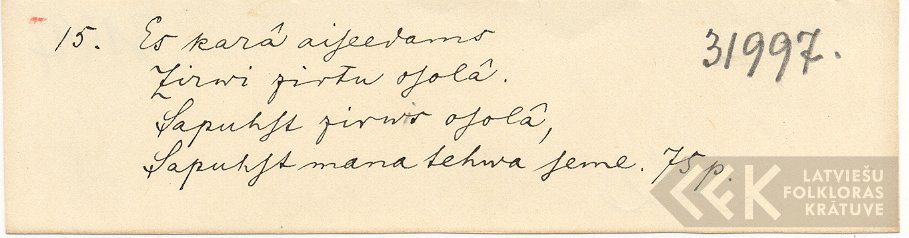 15. Es karâ aiſeedams 31997.
Zirwi zirtu oſolâ.
Sapuhſt zirwis oſolâ,
Sapuhſt mana tehwa ſeme. 75 p.
LATVIEŠU
FOLKLORAS
KRĀTUVE